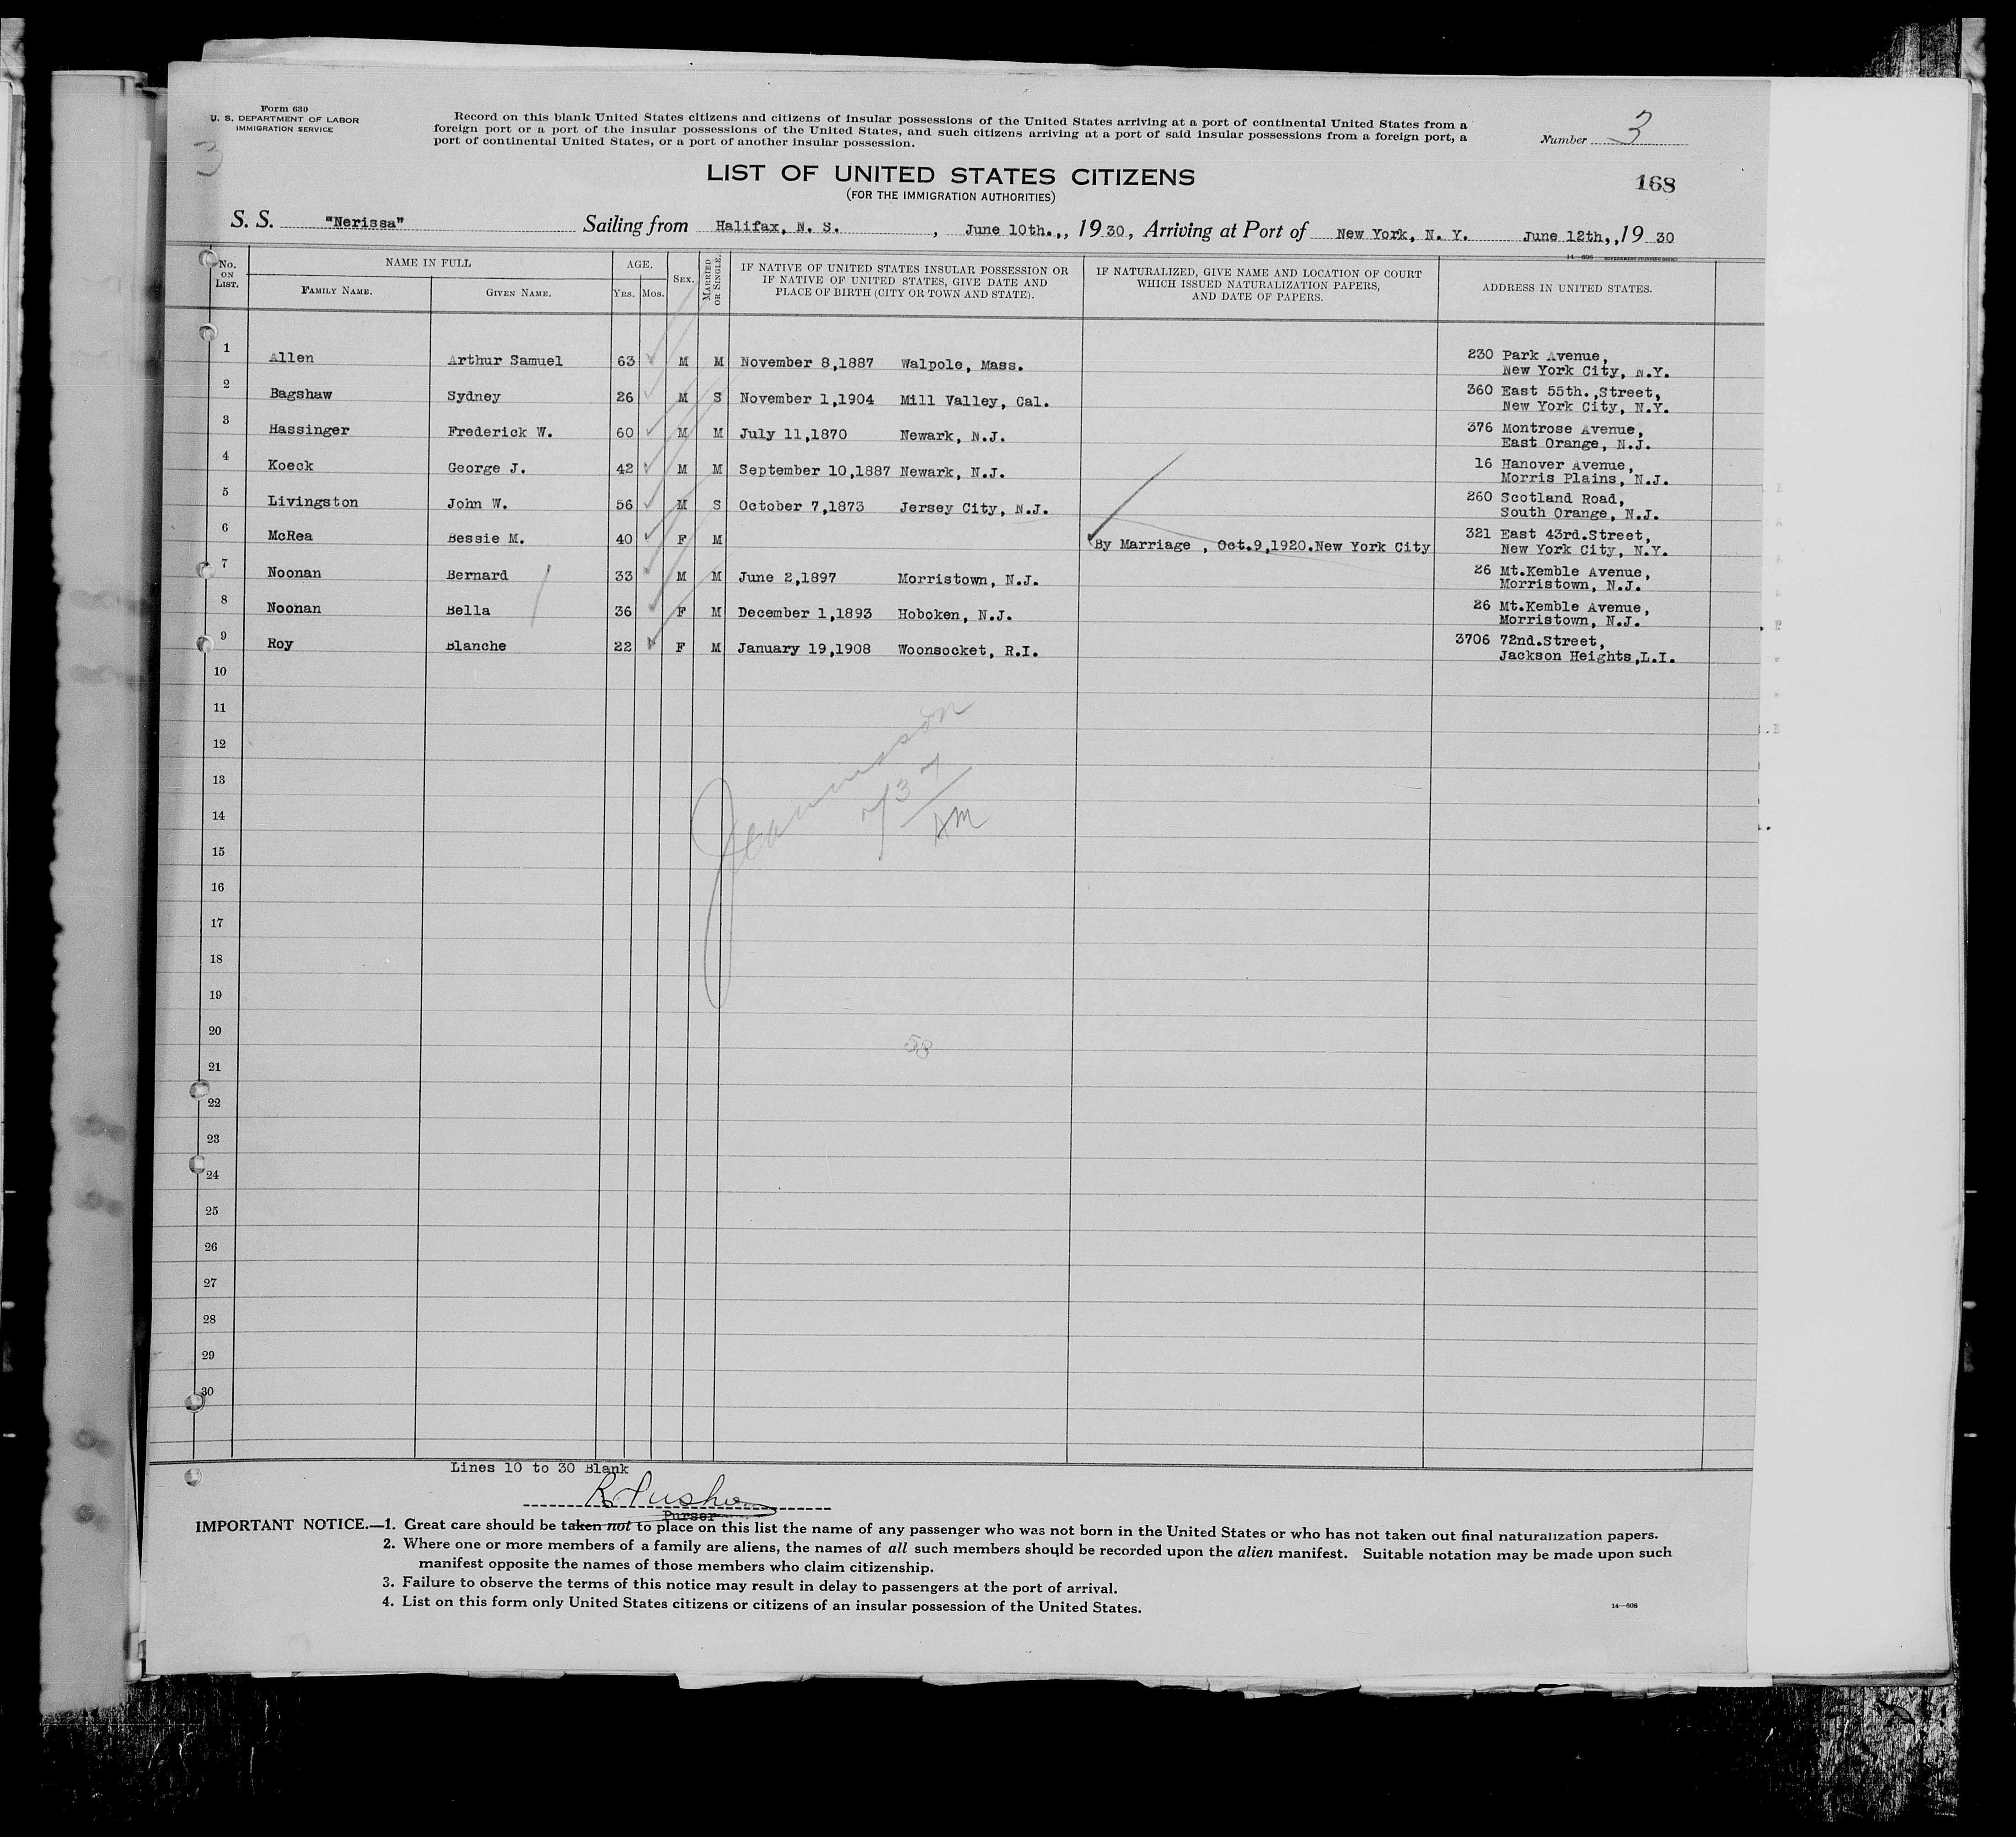 Form 630
U. S. DEPARTMENT OF LABOR
IMMIGRATION SERVICE
3
Record on this blank United States citizens and citizens of insular possessions of the United States arriving at a port of continental United States from a
foreign port or a port of the insular possessions of the United States, and such citizens arriving at a port of said insular possessions from a foreign port, a
port of continental United States, or a port of another insular possession.
Number 3
LIST OF UNITED STATES CITIZENS
(FOR THE IMMIGRATION AUTHORITIES)
168
S. S. "Nerissa" Sailing from Halifax, N. S. , June 10th., , 1930, Arriving at Port of New York, N. Y. June 12th, , 1930
14—608 GOVERNMENT PRINTING OFFICE
No. ON LIST. NAME IN FULL FAMILY NAME. GIVEN NAME. AGE. YRS. MOS. SEX. MARRIED OR SINGLE. IF NATIVE OF UNITED STATES INSULAR POSSESSION OR IF NATIVE OF UNITED STATES, GIVE DATE AND PLACE OF BIRTH (CITY OR TOWN AND STATE). IF NATURALIZED, GIVE NAME AND LOCATION OF COURT WHICH ISSUED NATURALIZATION PAPERS, AND DATE OF PAPERS. ADDRESS IN UNITED STATES.
1 Allen Arthur Samuel 63 M M November 8,1887 Walpole, Mass. 230 Park Avenue,
New York City, N.Y.
2 Bagshaw Sydney 26 M S November 1,1904 Mill Valley, Cal. 360 East 55th.,Street,
New York City, N.Y.
3 Hassinger Frederick W. 60 M M July 11,1870 Newark, N.J. 376 Montrose Avenue,
East Orange, N.J.
4 Koeck George J. 42 M M September 10,1887 Newark, N.J. 16 Hanover Avenue,
Morris Plains, N.J.
5 Livingston John W. 56 M S October 7,1873 Jersey City, N.J. 260 Scotland Road,
South Orange, N.J.
6 McRea Bessie M. 40 F M By Marriage , Oct.9,1920.New York City 321 East 43rd.Street,
New York City, N.Y.
7 Noonan Bernard 33 M M June 2,1897 Morristown, N.J. 26 Mt.Kemble Avenue,
Morristown, N.J.
8 Noonan Bella 36 F M December 1,1893 Hoboken, N.J. 26 Mt.Kemble Avenue,
Morristown, N.J.
9 Roy Blanche 22 F M January 19,1908 Woonsocket, R.I. 3706 72nd.Street,
Jackson Heights,L.I.
10
11
12
13
14
AM
15
16
17
18
19
20
58
21
22
23
24
25
26
27
28
29
30
Lines 10 to 30 Blank
Purser
IMPORTANT NOTICE.—1. Great care should be taken not to place on this list the name of any passenger who was not born in the United States or who has not taken out final naturalization papers.
2. Where one or more members of a family are aliens, the names of all such members should be recorded upon the alien manifest. Suitable notation may be made upon such
manifest opposite the names of those members who claim citizenship.
3. Failure to observe the terms of this notice may result in delay to passengers at the port of arrival.
4. List on this form only United States citizens or citizens of an insular possession of the United States.
14—608